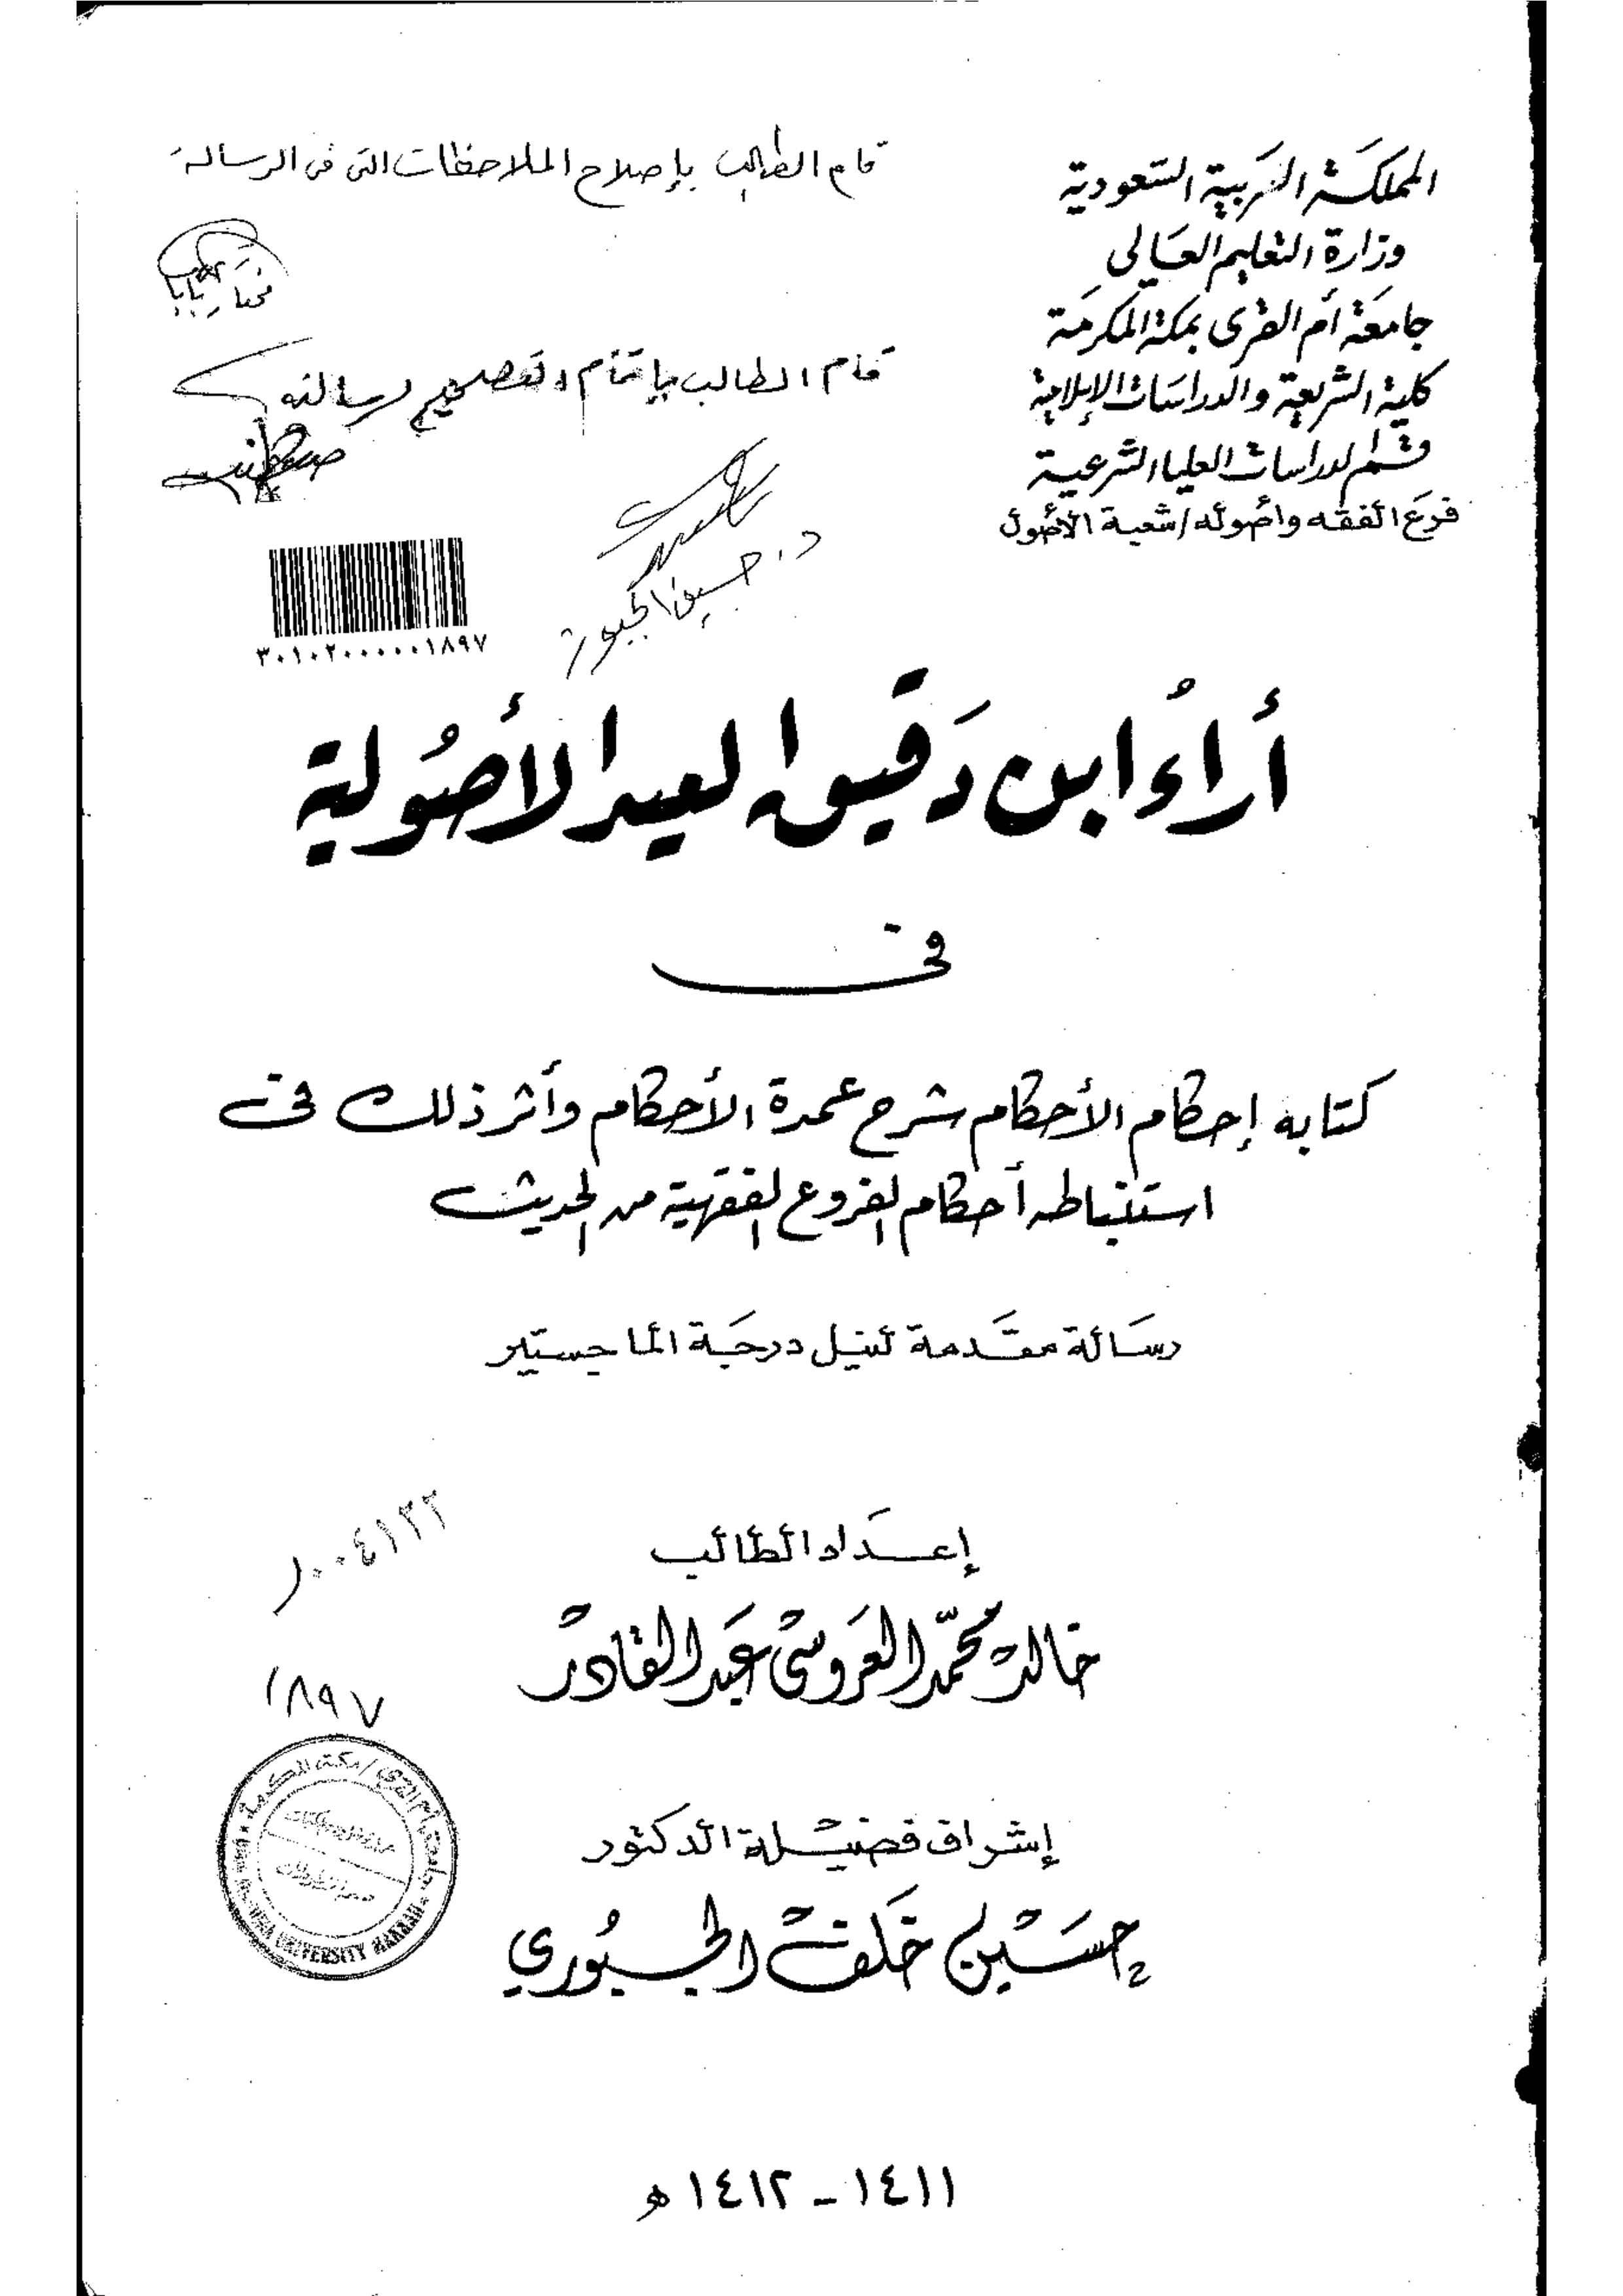 المملكة العربية السعودية
وزارة التعليم العالي
جامعة أم القرى بمكة المكرمة
كلية الشريعة والدراسات الإسلامية
قسم الدراسات العليا الشرعية
فرع الفقه وأصوله / شعبة الأصول
قام الطالب بإصلاح الملاحظات التى فى الرسالة
قام الطالب بإتمام التصحيح لرسالته
د. حسين الجبورى
٣٠١٠٢٠٠٠٠٠١٨٩٧
أراءُ ابن دَقيق العيد الأصُولية
فى
كتابه إحكام الأحكام شرح عمدة الأحكام وأثر ذلك فى
استنباطه أحكام الفروع الفقهية من الحديث
رسَالة مقَدمة لنيل درجَة الماجستير
إعدَاد الطالب
خالد محمّد العَروسى عَبد القادر
١٠٠٤١٢٢
١٨٩٧
إشراف فضيلة الدكتور
حسَين خَلف الجبُوري
جامعة أم القرى / مكة المكرمة
UNIVERSITY MAKKAH
١٤١١ - ١٤١٢ ه